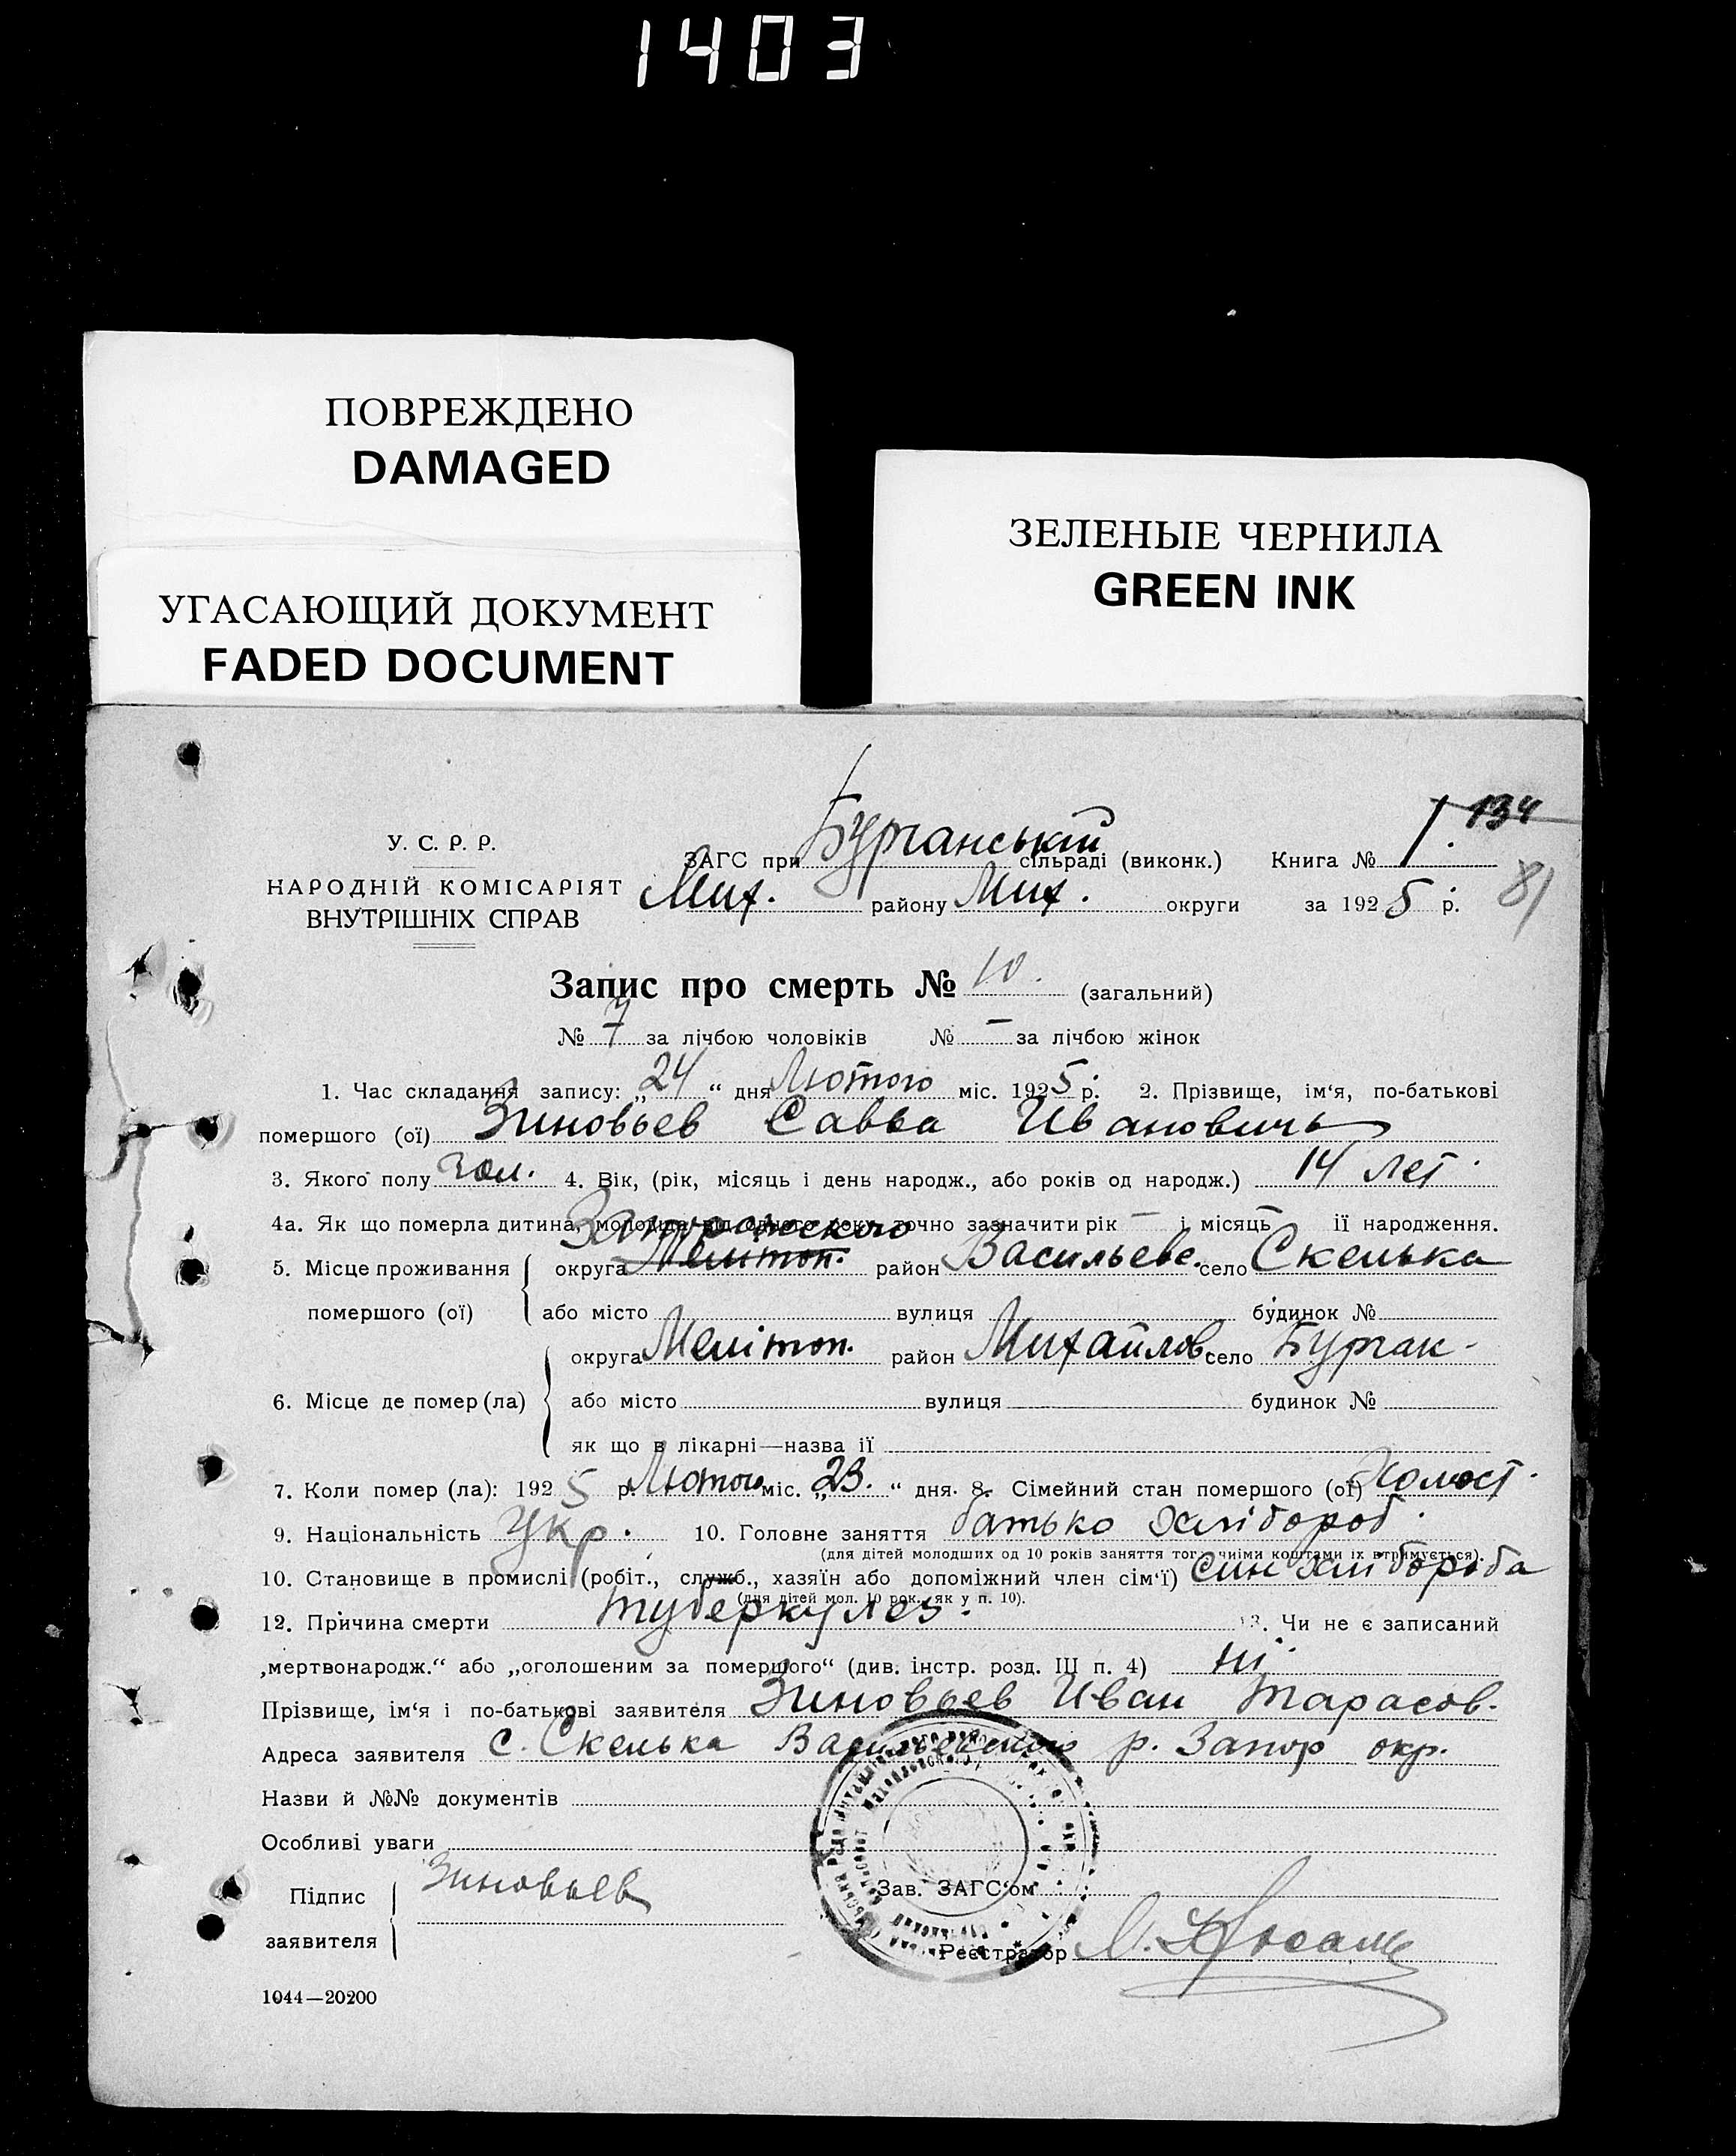 1403
ПОВРЕЖДЕНО
DAMAGED
УГАСАЮЩИЙ ДОКУМЕНТ
FADED DOCUMENT
ЗЕЛЕНЫЕ ЧЕРНИЛА
GREEN INK
134
81
У. С. Р. Р.
НАРОДНІЙ КОМІСАРІЯТ
ВНУТРІШНІХ СПРАВ
ЗАГС при Бурчанській сільраді (виконк.) Книга № 1.
Мих. району Мих. округи за 1925 р.
Запис про смерть № 10. (загальний)
№ 7 за лічбою чоловіків № — за лічбою жінок
1. Час складання запису: „24“ дня Лютого міс. 1925 р. 2. Прізвище, ім'я, по-батькові
помершого (ої) Зиновьев Савва Ивановичь
3. Якого полу чол. 4. Вік, (рік, місяць і день народж., або років од народж.) 14 лет.
4а. Як що померла дитина, молодша від одного року, точно зазначити рік — і місяць — ії народження.
Запорожского
5. Місце проживання округа Мелітоп. район Васильевс. село Скелька
помершого (ої) або місто вулиця будинок №
округа Мелітоп. район Михайлов село Бурчак-
6. Місце де помер (ла) або місто вулиця будинок №
як що в лікарні—назва ії
7. Коли помер (ла): 1925 р. Лютого міс. „23.“ дня. 8. Сімейний стан помершого (ої) Холост.
9. Національність Укр. 10. Головне заняття батько хлібороб.
(для дітей молодших од 10 років заняття того, чиіми коштами іх втримується).
10. Становище в промислі (робіт., служб., хазяїн або допоміжний член сім'ї) син хлібороба
(для дітей мол. 10 рок., як у п. 10).
12. Причина смерти туберкулез. 13. Чи не є записаний
„мертвонародж.“ або „оголошеним за помершого“ (див. інстр. розд. III п. 4) ні.
Прізвище, ім'я і по-батькові заявителя Зиновьев Иван Тарасов.
Адреса заявителя с. Скелька Васильевского р. Запор окр.
Назви й №№ документів
Особливі уваги
Підпис Зиновьев Зав. ЗАГС'ом
заявителя Реєстратор
1044—20200